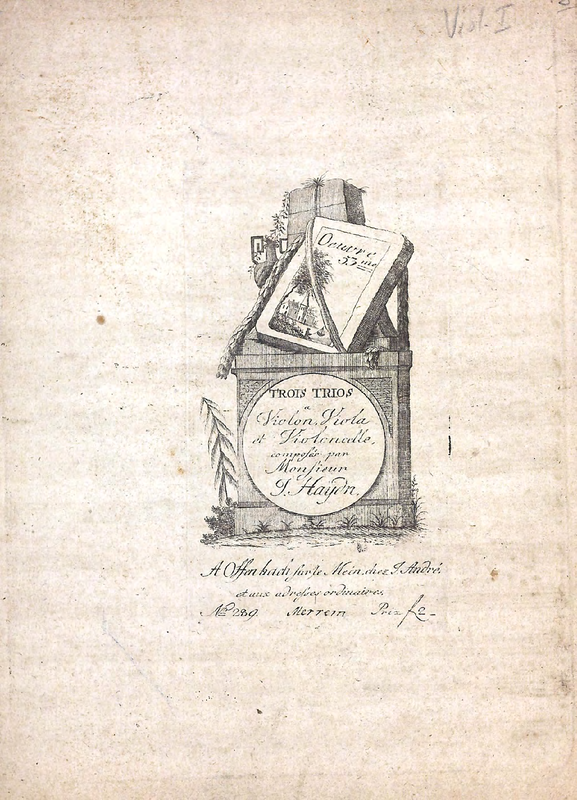 Viol. I
Oeuvre
53me
TROIS TRIOS
a
Violon, Viola
et Violoncelle,
composés par
Monsieur
J. Haydn.
A Offenbach sur le Mein, chez J. André.
et aux adresses ordinaires.
No 289. Merrem Prix f 2_